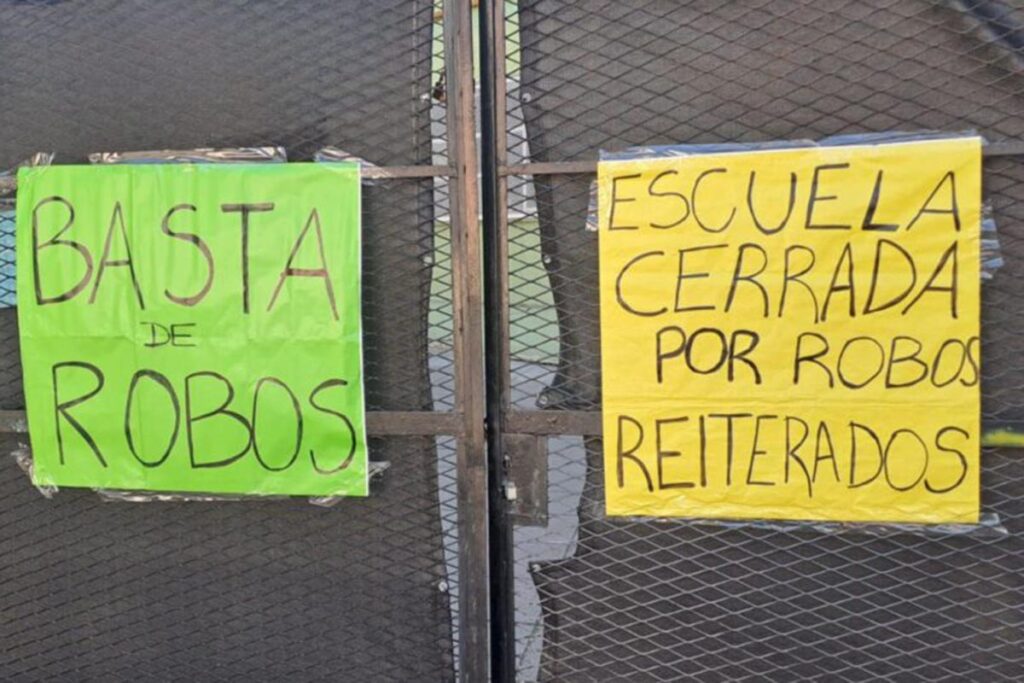 BASTA
DE
ROBOS
ESCUELA
CERRADA
POR ROBOS
REITERADOS